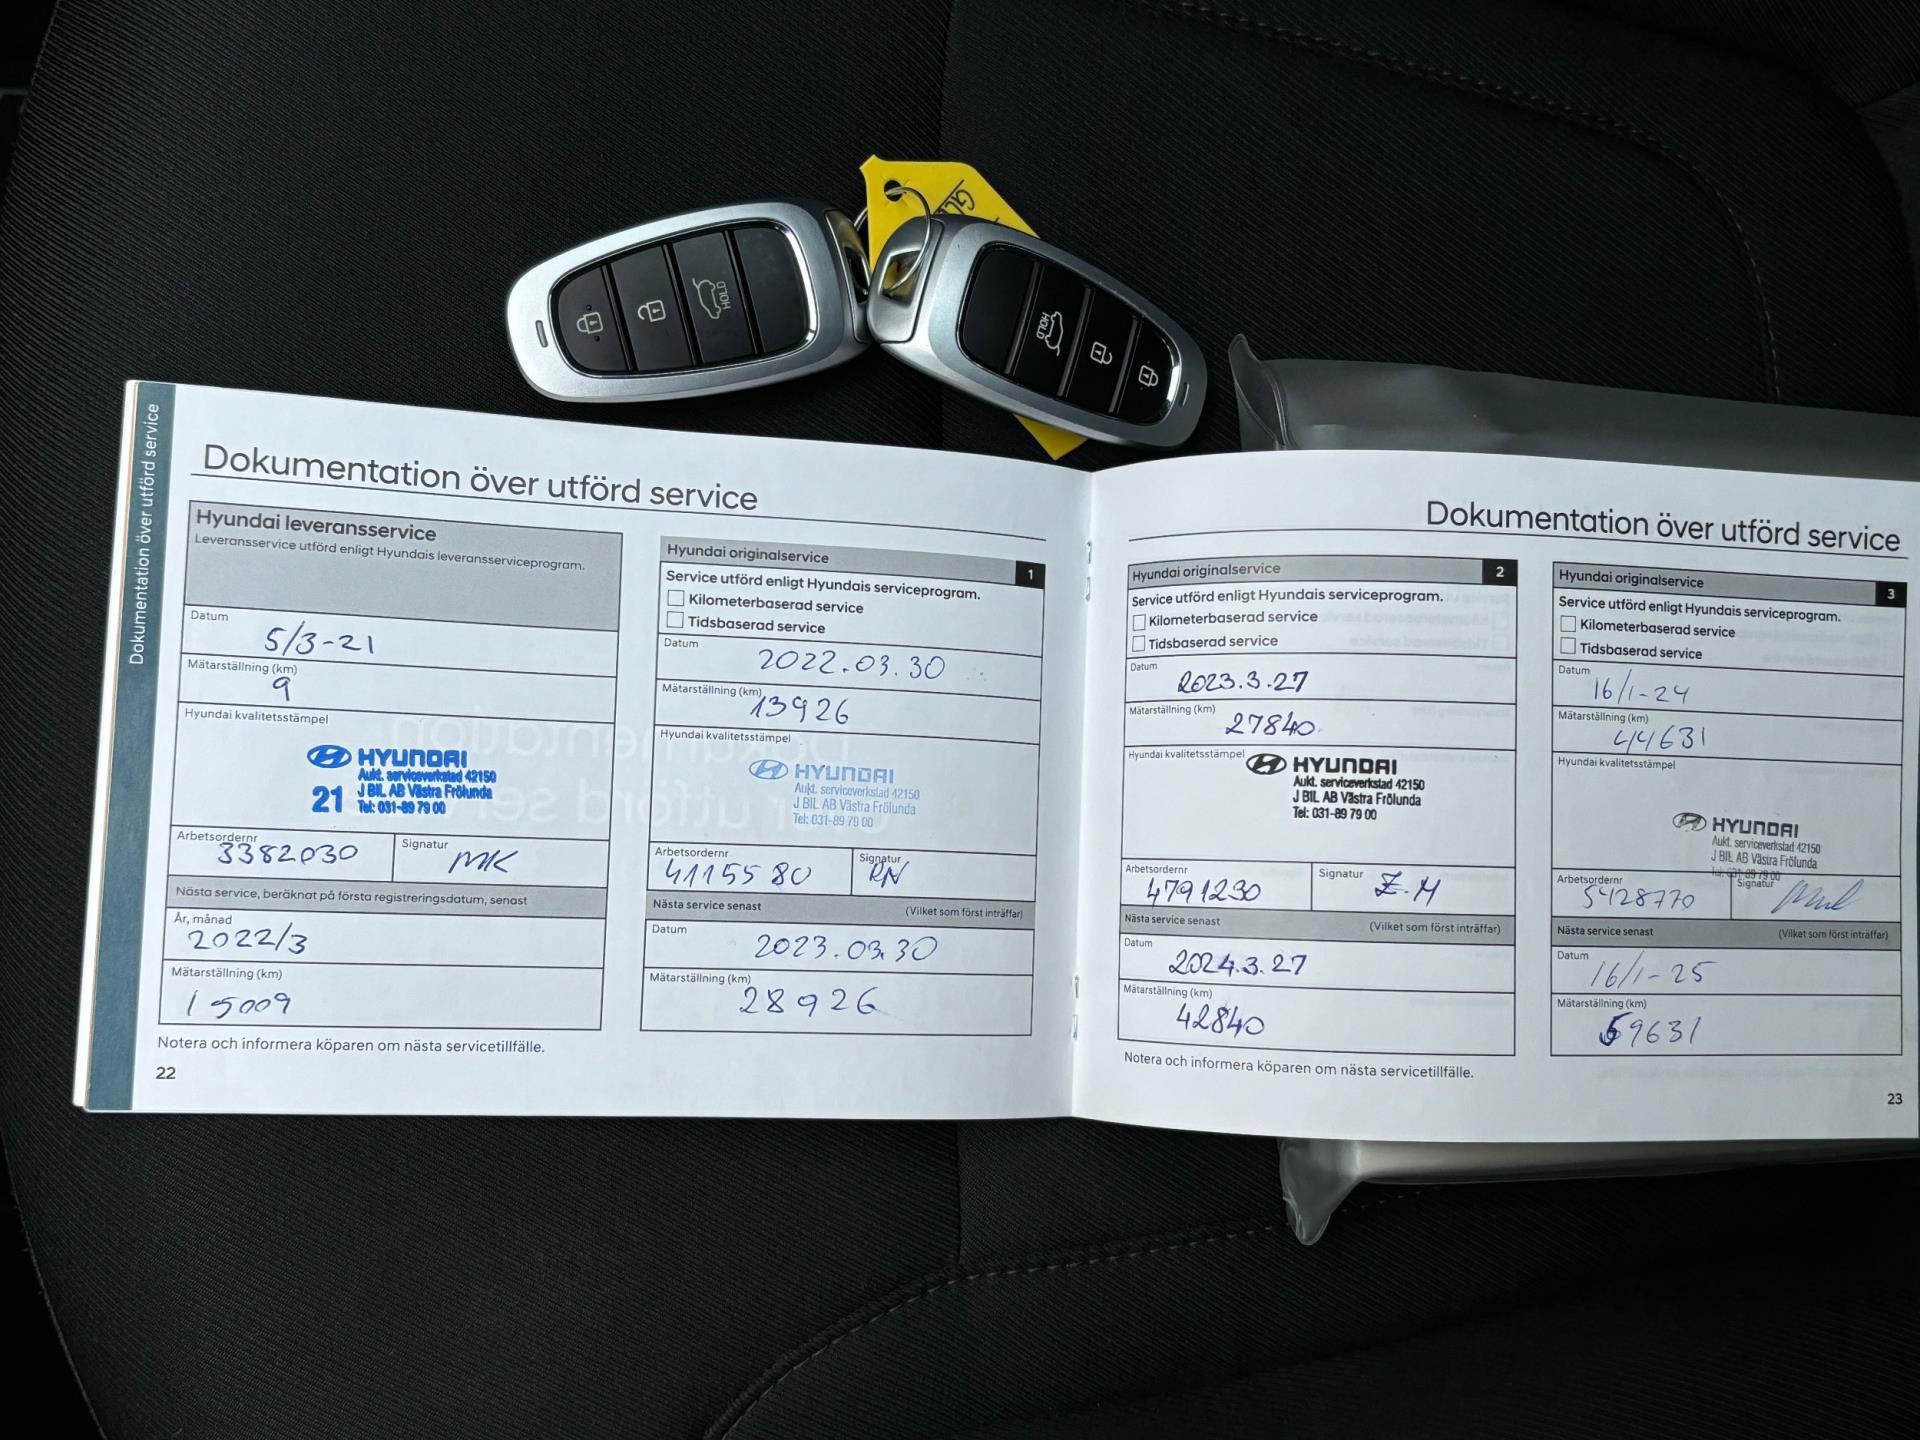 GL
HOLD
HOLD
Dokumentation över utförd service
Dokumentation över utförd service
Hyundai leveransservice
Leveransservice utförd enligt Hyundais leveransserviceprogram.
Datum
5/3-21
Mätarställning (km)
9
Hyundai kvalitetsstämpel
HYUNDAI
Aukt. serviceverkstad 42150
21 J BIL AB Västra Frölunda
Tel: 031-89 79 00
Arbetsordernr
3382030
Signatur
MK
Nästa service, beräknat på första registreringsdatum, senast
År, månad
2022/3
Mätarställning (km)
15009
Notera och informera köparen om nästa servicetillfälle.
22
Hyundai originalservice
1
Service utförd enligt Hyundais serviceprogram.
Kilometerbaserad service
Tidsbaserad service
Datum
2022.03.30
Mätarställning (km)
13926
Hyundai kvalitetsstämpel
HYUNDAI
Aukt. serviceverkstad 42150
J BIL AB Västra Frölunda
Tel: 031-89 79 00
Arbetsordernr
4115580
Signatur
RN
Nästa service senast (Vilket som först inträffar)
Datum
2023.03.30
Mätarställning (km)
28926
Dokumentation över utförd service
Hyundai originalservice
2
Service utförd enligt Hyundais serviceprogram.
Kilometerbaserad service
Tidsbaserad service
Datum
2023.3.27
Mätarställning (km)
27840
Hyundai kvalitetsstämpel
HYUNDAI
Aukt. serviceverkstad 42150
J BIL AB Västra Frölunda
Tel: 031-89 79 00
Arbetsordernr
4791230
Signatur
Z.M
Nästa service senast (Vilket som först inträffar)
Datum
2024.3.27
Mätarställning (km)
42840
Notera och informera köparen om nästa servicetillfälle.
Hyundai originalservice
3
Service utförd enligt Hyundais serviceprogram.
Kilometerbaserad service
Tidsbaserad service
Datum
16/1-24
Mätarställning (km)
44631
Hyundai kvalitetsstämpel
HYUNDAI
Aukt. serviceverkstad 42150
J BIL AB Västra Frölunda
Tel: 031-89 79 00
Arbetsordernr
5428770
Signatur
Nästa service senast (Vilket som först inträffar)
Datum
16/1-25
Mätarställning (km)
59631
23